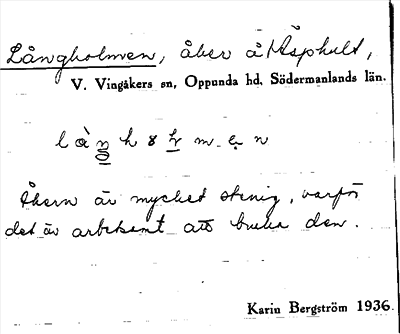 Långholmen, åker å Äsphult,
V. Vingåkers sn, Oppunda hd, Södermanlands län.
Åkern är mycket stenig, varför
det är arbetsamt att bruka den.
Karin Bergström 1936